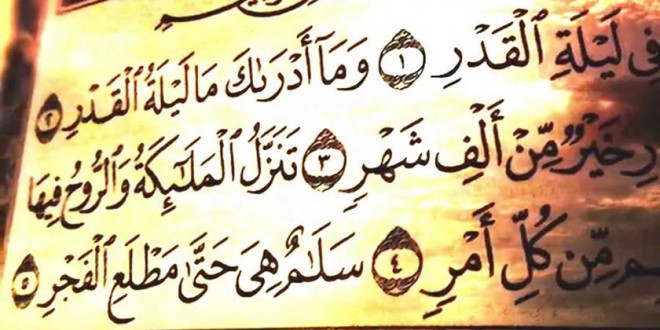 فِي لَيْلَةِ ٱلْقَدْرِ ١ وَمَآ أَدْرَىٰكَ مَا لَيْلَةُ ٱلْقَدْرِ ٢
خَيْرٌ مِّنْ أَلْفِ شَهْرٍ ٣ تَنَزَّلُ ٱلْمَلَـٰٓئِكَةُ وَٱلرُّوحُ فِيهَا
مِّن كُلِّ أَمْرٍ ٤ سَلَـٰمٌ هِىَ حَتَّىٰ مَطْلَعِ ٱلْفَجْرِ ٥